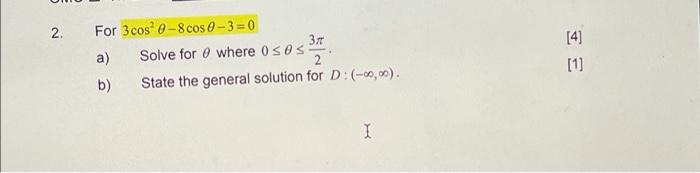 2. For 3cos² θ – 8cos θ – 3 = 0
a) Solve for θ where 0 ≤ θ ≤ 3π/2. [4]
b) State the general solution for D : (–∞,∞). [1]